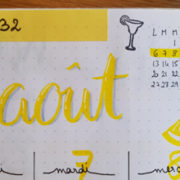 32
L M M
1
6 7 8
13 14 15
20 21 22
27 28 29
août
mardi 7